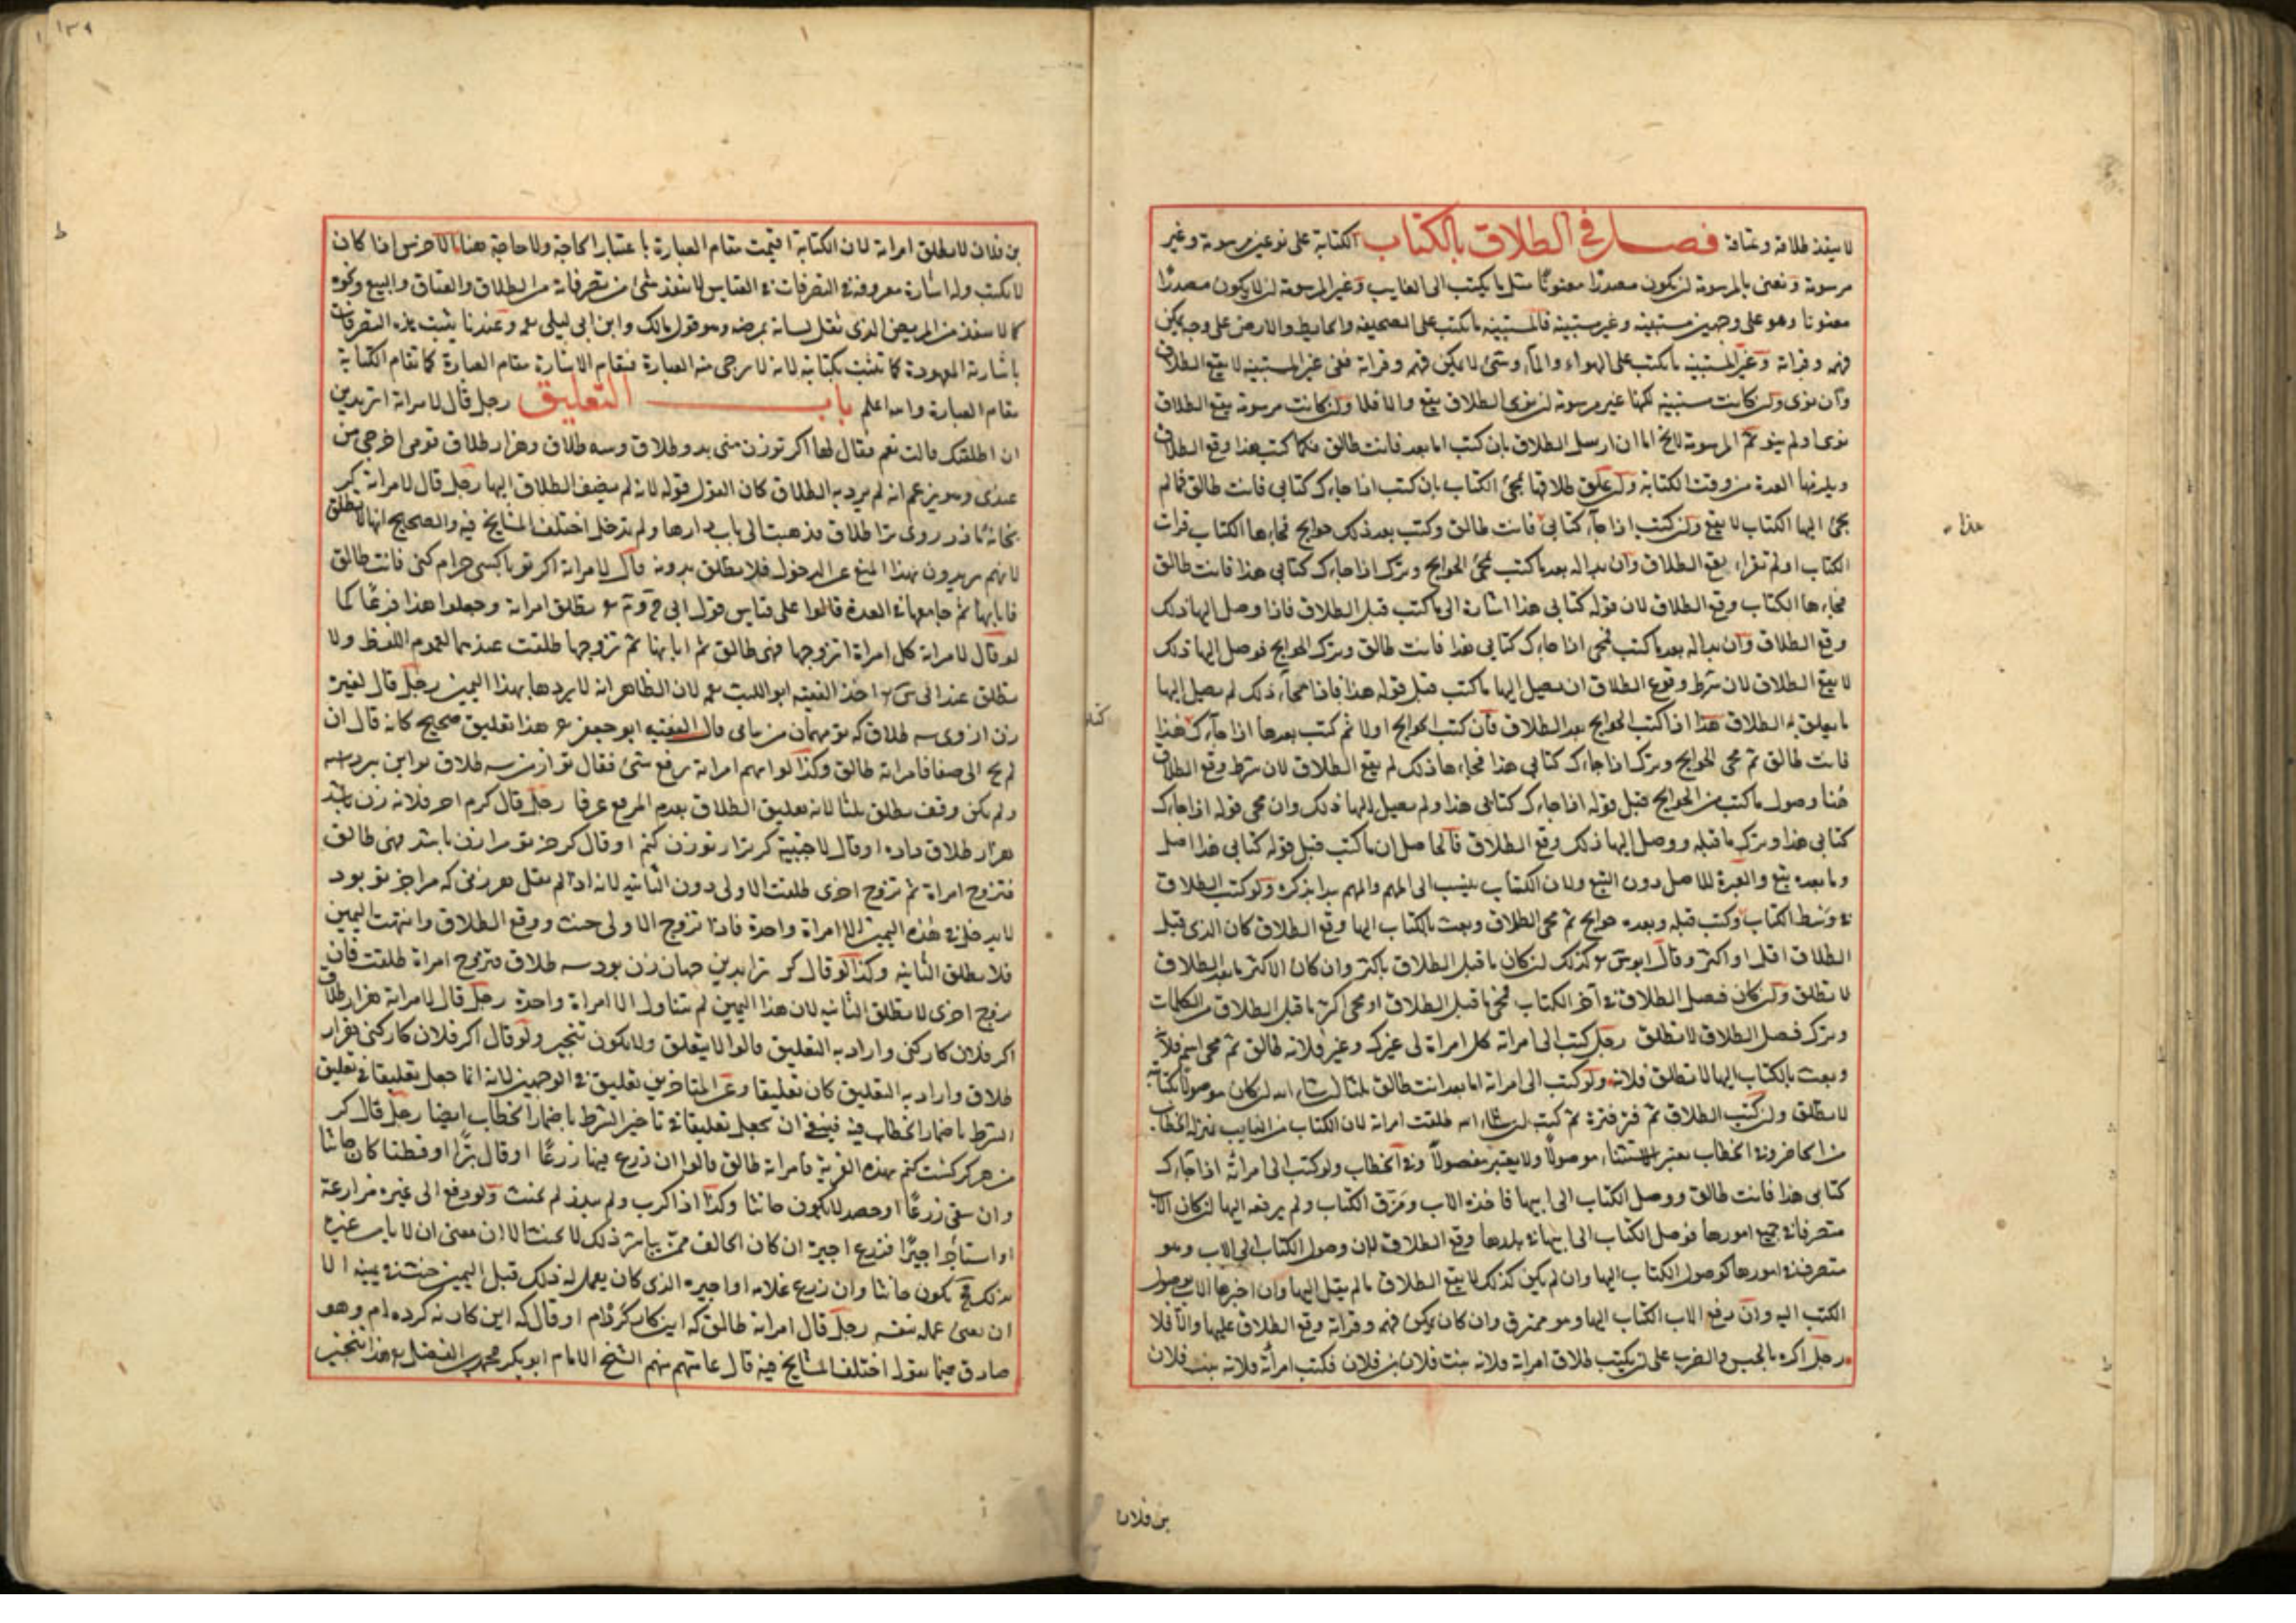 لا ينفذ طلاقه وعتاقه فصل في الطلاق بالكتاب الكتابة على نوعين مرسومة وغير
مرسومة ونعني بالمرسومة ان يكون مصدرا معنونا مثل ما يكتب الى الغايب وغير المرسومة ان لا يكون مصدرا
معنونا وهو على وجهين مستبينه وغير مستبينه فالمستبينه ما يكتب على الصحيفه والحايط والارض على وجه يمكن
فهمه وقراته وغير المستبينه ما يكتب على الهواء والماء وشئ لا يمكن فهمه وقراته ففي غير المستبينه لا يقع الطلاق
وان نوى وان كانت مستبينه لكنها غير مرسومة ان نوى الطلاق يقع والا فلا وان كانت مرسومة يقع الطلاق
نوى او لم ينو ثم المرسومة لا يخ اما ان ارسل الطلاق بان كتب اما بعد فانت طالق فكما كتب هذا وقع الطلاق
ويلزمها العدة من وقت الكتابة وان علق طلاقها بمجئ الكتاب بان كتب اذا جاءك كتابي فانت طالق فما لم
يجئ اليها الكتاب لا يقع وان كتب اذا جاءك كتابي فانت طالق وكتب بعد ذلك حوايج فجاءها الكتاب فرات
الكتاب او لم تقراء يقع الطلاق وان بدا له بعد ما كتب فمحى الحوايج وترك اذا جاءك كتابي هذا فانت طالق
فجاءها الكتاب وقع الطلاق لان قوله كتابي هذا اشارة الى ما كتب قبل الطلاق فاذا وصل اليها ذلك
وقع الطلاق وان بدا له بعد ما كتب فمحى اذا جاءك كتابي هذا فانت طالق وترك الحوايج فوصل اليها ذلك
لا يقع الطلاق لان شرط وقوع الطلاق ان يصل اليها ما كتب قبل قوله هذا فاذا محاء ذلك لم يصل اليها
ما يعلق به الطلاق هذا اذا كتب الحوايج بعد الطلاق فان كتب الحوايج اولا ثم كتب بعدها اذا جاءك هذا
فانت طالق ثم محى الحوايج وترك اذا جاءك كتابي هذا فجاءها ذلك لم يقع الطلاق لان شرط وقوع الطلاق
هنا وصول ما كتب من الحوايج قبل قوله اذا جاءك كتابي هذا ولم يصل اليها ذلك وان محى قوله اذا جاءك
كتابي هذا وترك ما قبله ووصل اليها ذلك وقع الطلاق فالحاصل ان ما كتب قبل قوله كتابي هذا اصل
وما بعده تبع والعبرة للاصل دون التبع ولان الكتاب ينسب الى المهم والمهم يبدا بذكره ولو كتب الطلاق
في وسط الكتاب وكتب قبله وبعده حوايج ثم محى الطلاق وبعث بالكتاب اليها وقع الطلاق كان الذي قبل
الطلاق اقل او اكثر وقال ابو يس كذلك ان كان ما قبل الطلاق باكثر وان كان الاكثر ما بعد الطلاق
لا تطلق وان كان فصل الطلاق في آخر الكتاب فمحى ما قبل الطلاق او محى اكثر ما قبل الطلاق من الكلمات
وترك فصل الطلاق لا تطلق رجل كتب الى امراته كل امراة لي غيرك وغير فلانة طالق ثم محى اسم فلانة
وبعث بالكتاب اليها لا تطلق فلانة ولو كتب الى امراته اما بعد انت طالق ثلثا ان شاء الله ان كان موصولا بكتابه
لا تطلق وان كتب الطلاق ثم فتر فترة ثم كتب ان شاء الله طلقت امراته لان الكتاب من الغايب بمنزلة الخطاب
من الحاضر وفي الخطاب يعتبر الاستثناء موصولا ولا يعتبر مفصولا وفي الخطاب ولو كتب الى امراته اذا جاءك
كتابي هذا فانت طالق ووصل الكتاب الى ابيها فاخذه الاب ومزق الكتاب ولم يدفعه اليها ان كان الاب
متصرفا في جميع امورها فوصل الكتاب الى ابيها في بلدها وقع الطلاق لان وصول الكتاب الى الاب وهو
متصرف في امورها كوصول الكتاب اليها وان لم يكن كذلك لا يقع الطلاق ما لم يصل اليها وان اخبرها الاب بوصول
الكتاب اليه وان دفع الاب الكتاب اليها وهو ممزق وان كان يمكن فهمه وقراته وقع الطلاق عليها والا فلا
رجل اكره بالحبس والضرب على ان يكتب طلاق امراته فلانة بنت فلان بن فلان فكتب امراته فلانة بنت فلان
بن فلان
هذا
بن فلان لا تطلق امراته لان الكتابة اقيمت مقام العبارة باعتبار الحاجة ولا حاجة هنا الاخرس اذا كان
لا يكتب وله اشارة معروفة في التصرفات في القياس لا ينفذ شئ من تصرفاته من الطلاق والعتاق والبيع ونحوه
كما لا ينفذ من المريض الذي ثقل لسانه بمرضه وهو قول مالك وابن ابي ليلى وعندنا يثبت هذه التصرفات
باشارته المعهودة كما تثبت بكتابته لانه لا يرجى منه العبارة فتقام الاشارة مقام العبارة كما تقام الكتابة
مقام العبارة والله اعلم باب التعليق رجل قال لامراته اتريدين
ان اطلقك قالت نعم فقال لها اكر تو زن مني يد وطلاق وسه طلاق وهزار طلاق قومي اخرجي من
عندي وهو يزعم انه لم يرد به الطلاق كان القول قوله لانه لم يضف الطلاق اليها رجل قال لامراته
بخانه فاذر روى ترا طلاق فذهبت الى باب دارها ولم تدخل اختلف المشايخ فيه والصحيح انها لا تطلق
لانهم يريدون بهذا المنع عن الدخول فلا تطلق بدونه قال لامراته اكر تو با كسى حرام كنى فانت طالق
فابانها ثم جامعها في العدة قالوا على قياس قول تطلق امراته وجعلوا هذا فرعا لما
لو قال لامراته كل امراة اتزوجها فهي طالق ثم ابانها ثم تزوجها طلقت عندهما لعموم اللفظ ولا
تطلق عند اخذ الفقيه ابو الليث لان الظاهر انه لا يريدها بهذا اليمين رجل قال لغيره
زن از وى سه طلاق كه تو مهمان من قال الفقيه ابو جعفر هذا تعليق صحيح كانه قال ان
فامراته طالق وكذا لو اتهم امراته برفع شئ فقال تو از من سه طلاق
ولم يكن وقف تطلق ثلثا لانه تعليق الطلاق بعدم الرفع عرفا رجل قال
هزار طلاق داده او قال لاجنبية كر ترا زن كنم او قال كر جز تو مرا زن باشد فهي طالق
فتزوج امراة ثم تزوج اخرى طلقت الاولى دون الثانية لانه هر زنى كه مرا جز تو بود
لا يدخل في هذه اليمين الا امراة واحدة فاذا تزوج الاولى حنث ووقع الطلاق وانتهت اليمين
فلا تطلق الثانية وكذا لو قال كر ترا بدين جهان زن بود سه طلاق فتزوج امراة طلقت فان
تزوج اخرى لا تطلق الثانية لان هذا اليمين لم يتناول الا امراة واحدة رجل قال لامراته هزار طلاق
اكر فلان كار كنى واراد به التعليق قالوا لا يتعلق ولا يكون تنجيز ولو قال اكر فلان كار كنى هزار
طلاق واراد به التعليق كان تعليقا وعن المتاخرين تعليق في الوجهين لانه انما جعل تعليقا في تعليق
الشرط باضمار الخطاب فيه فينبغي ان يجعل تعليقا في تاخير الشرط باضمار الخطاب ايضا رجل قال كر
من هر كز كشت كنم بهذه القرية فامراته طالق قالوا ان زرع فيها زرعا او قال بزرا او قطنا كان حانثا
وان سقى زرعا او حصد لا يكون حانثا وكذا اذا كرب ولم يبذر لم يحنث ولو دفع الى غيره مزارعة
او استاجر اجيرا فزرع اجيره ان كان الحالف ممن يباشر ذلك لا يحنث الا ان يعني ان لا يامر غيره
بذلك فح يكون حانثا وان زرع غلامه او اجيره الذي كان يعمل له ذلك قبل اليمين حنث في يمينه الا
ان يعني عمله بنفسه رجل قال امراته طالق كه اين كار كرده ام او قال كه اين كار نه كرده ام وهو
صادق فيما يقول اختلف المشايخ فيه قال عامتهم منهم الشيخ الامام ابو بكر محمد بن الفضل هذا تنجيز